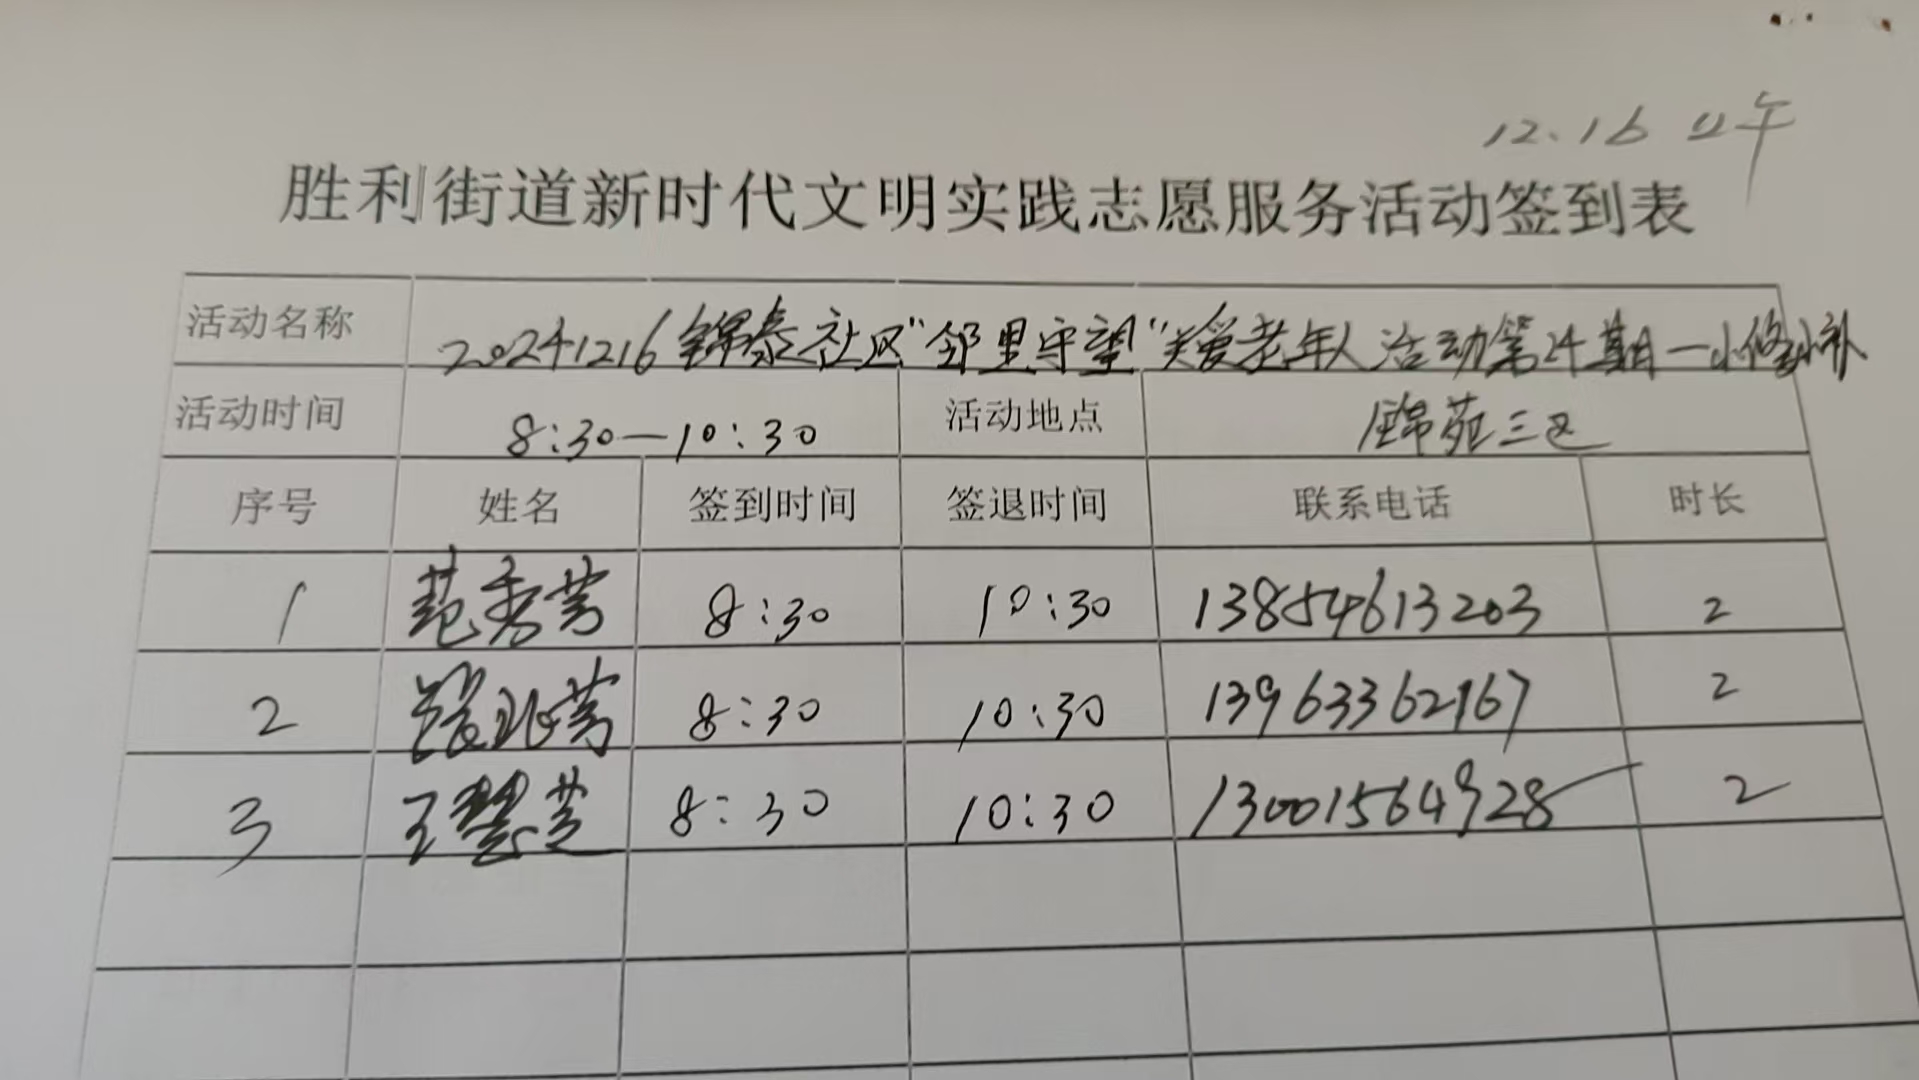 12.16 上午
胜利街道新时代文明实践志愿服务活动签到表
活动名称 20241216锦泰社区"邻里守望"关爱老年人活动第24期一小修小补
活动时间 8:30—10:30 活动地点 锦苑三区
序号 姓名 签到时间 签退时间 联系电话 时长
1 范秀芳 8:30 10:30 13854613203 2
2 8:30 10:30 13963362167 2
3 王慧芝 8:30 10:30 13001564928 2